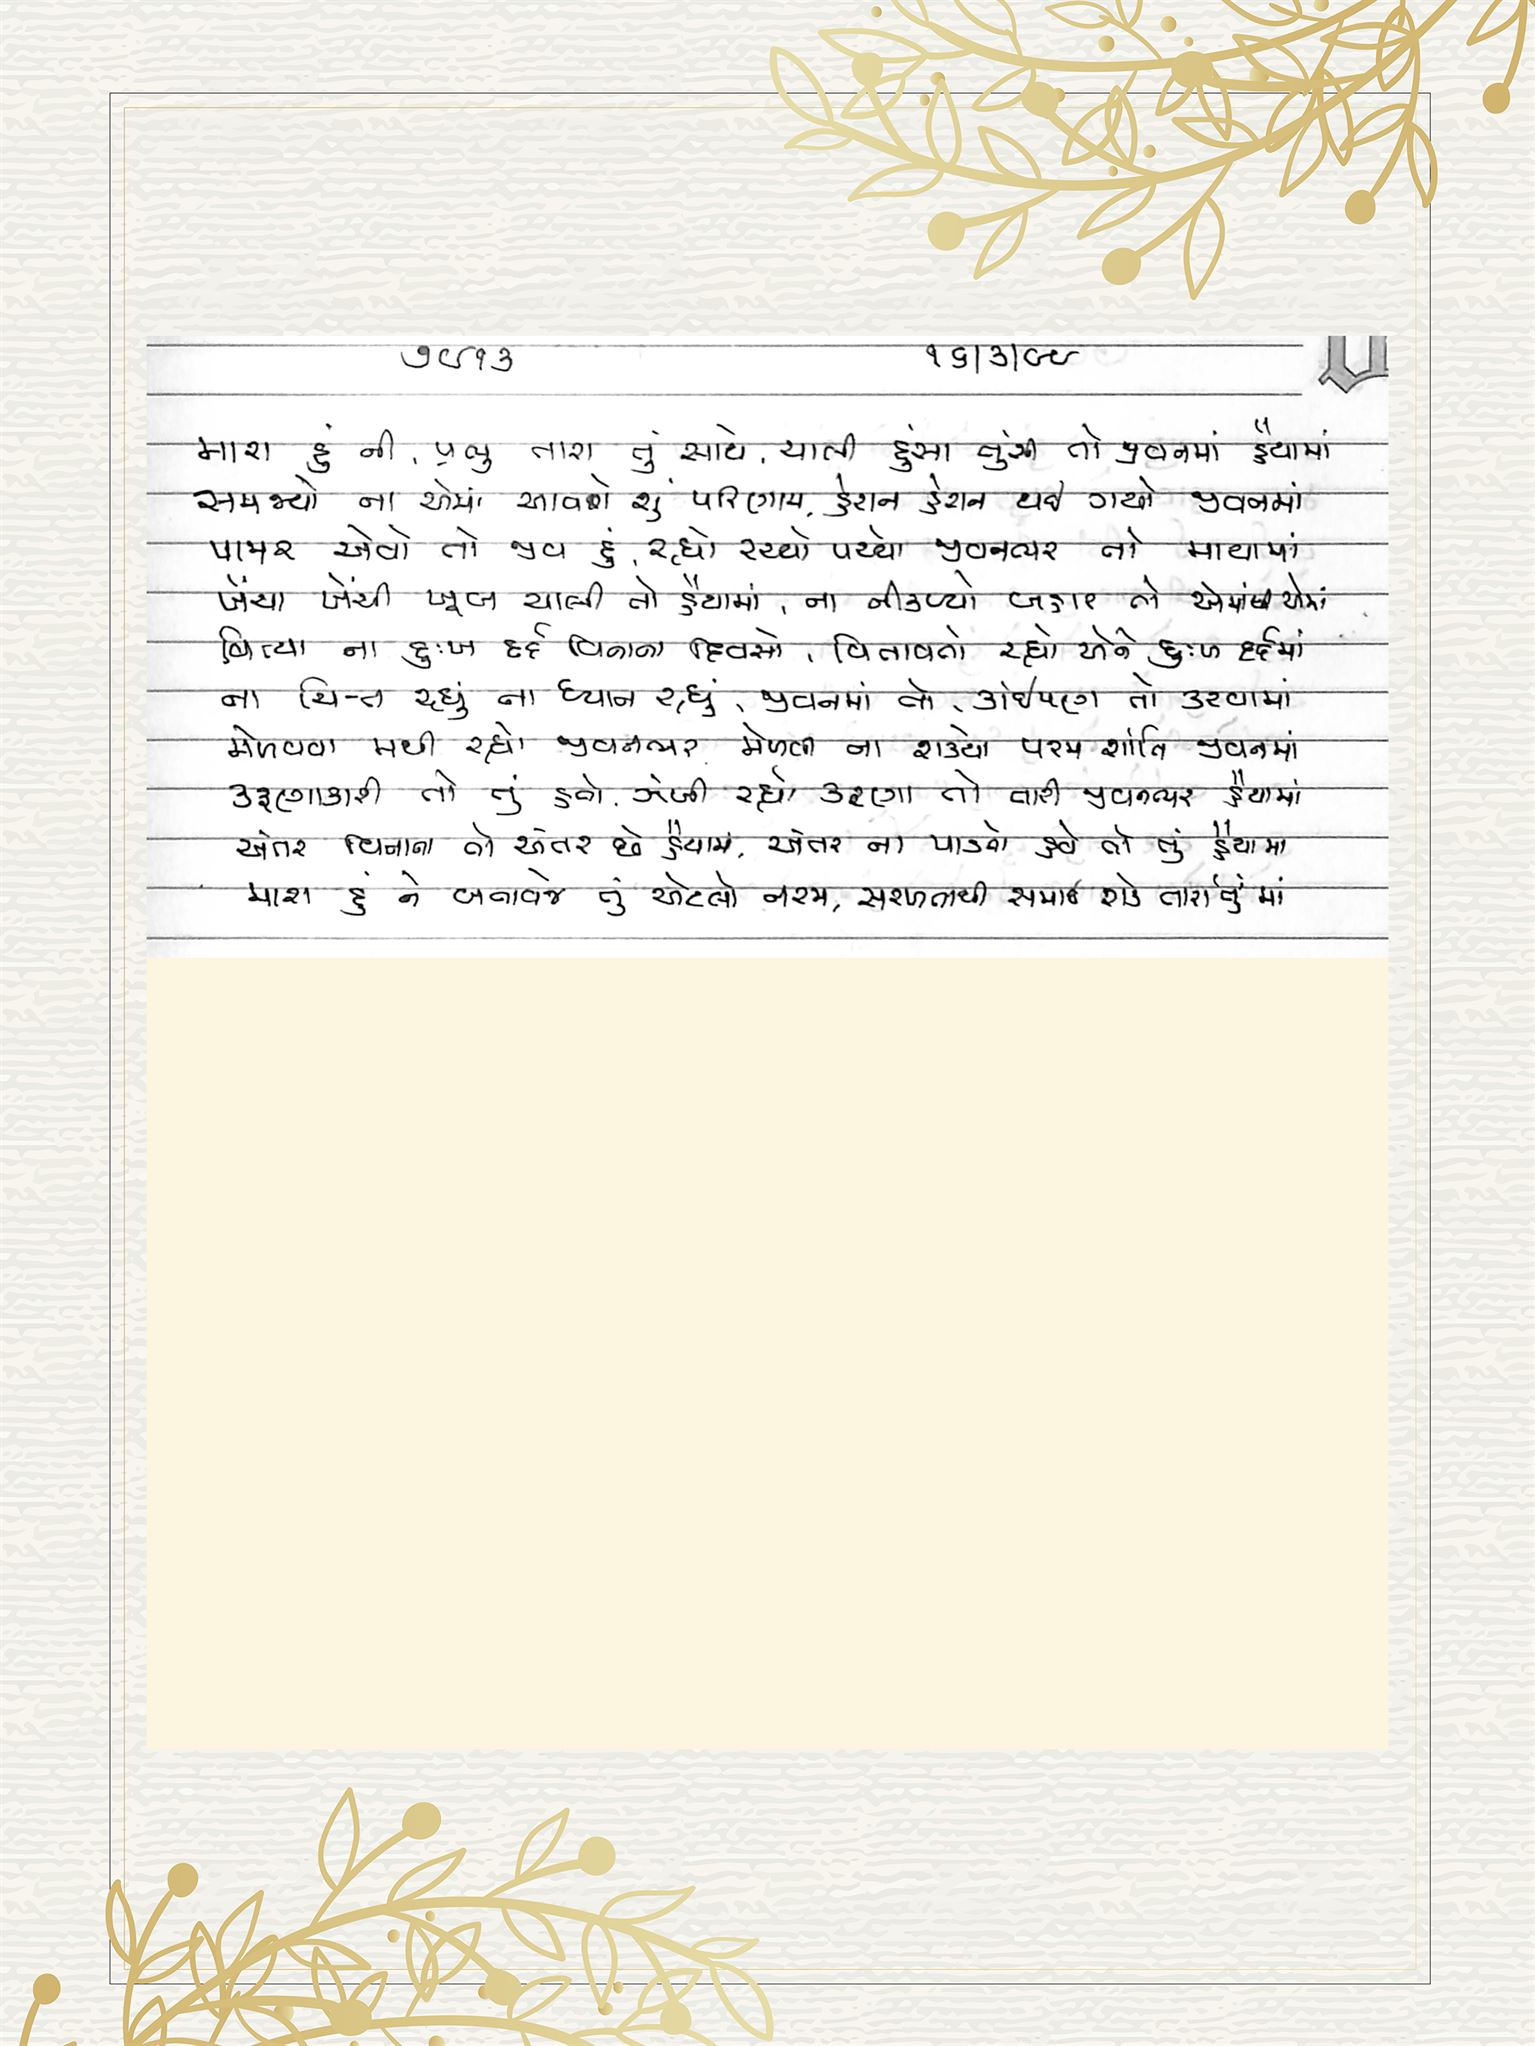 ૭૯૧૩ ૧૬/૩/૯૯
મારા હું ની, પ્રભુ તારા તું સાથે, ચાલી હુંસા તુંસી તો જીવનમાં હૈયામાં
સમજ્યો ના એમાં આવશે શું પરિણામ, હેરાન હેરાન થઈ ગયો જીવનમાં
પામર એવો તો જીવ હું, રહ્યો રચ્યો પચ્યો જીવનભર તો માયામાં
ખેંચા ખેંચી ખૂબ ચાલી તો હૈયામાં, ના નીકળ્યો બહાર તો એમાં
વિત્યા ના દુઃખ દર્દ વિનાના દિવસો, વિતાવતો રહ્યો એને દુઃખ દર્દમાં
ના ચિત્ત રહ્યું ના ધ્યાન રહ્યું, જીવનમાં તો, કાંઈપણ તો કરવામાં
મેળવવા મથી રહ્યો જીવનભર મેળવી ના શક્યો પરમ શાંતિ જીવનમાં
કરૂણાકારી તો તું પ્રભો, ઝંખી રહ્યો કરૂણા તો તારી જીવનભર હૈયામાં
અંતર વિનાના તો અંતર છે હૈયામાં, અંતર ના પાડતો હવે તો તું હૈયામાં
મારા હું ને બનાવજે તું એટલો નરમ, સરળતાથી સમાઈ શકે તારા તું માં